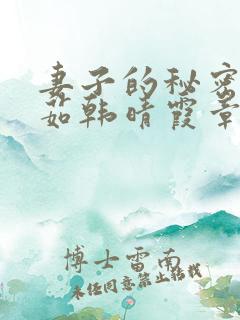 妻子的秘密
茹韩晴霞章
博士雷南
未经同意禁止转载